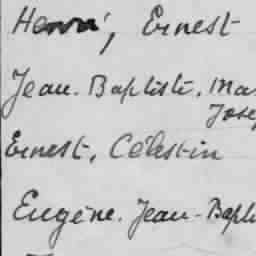 Henri, Ernest
Jean. Baptiste. Ma
Jose
Ernest, Célestin
Eugène. Jean-Bapti